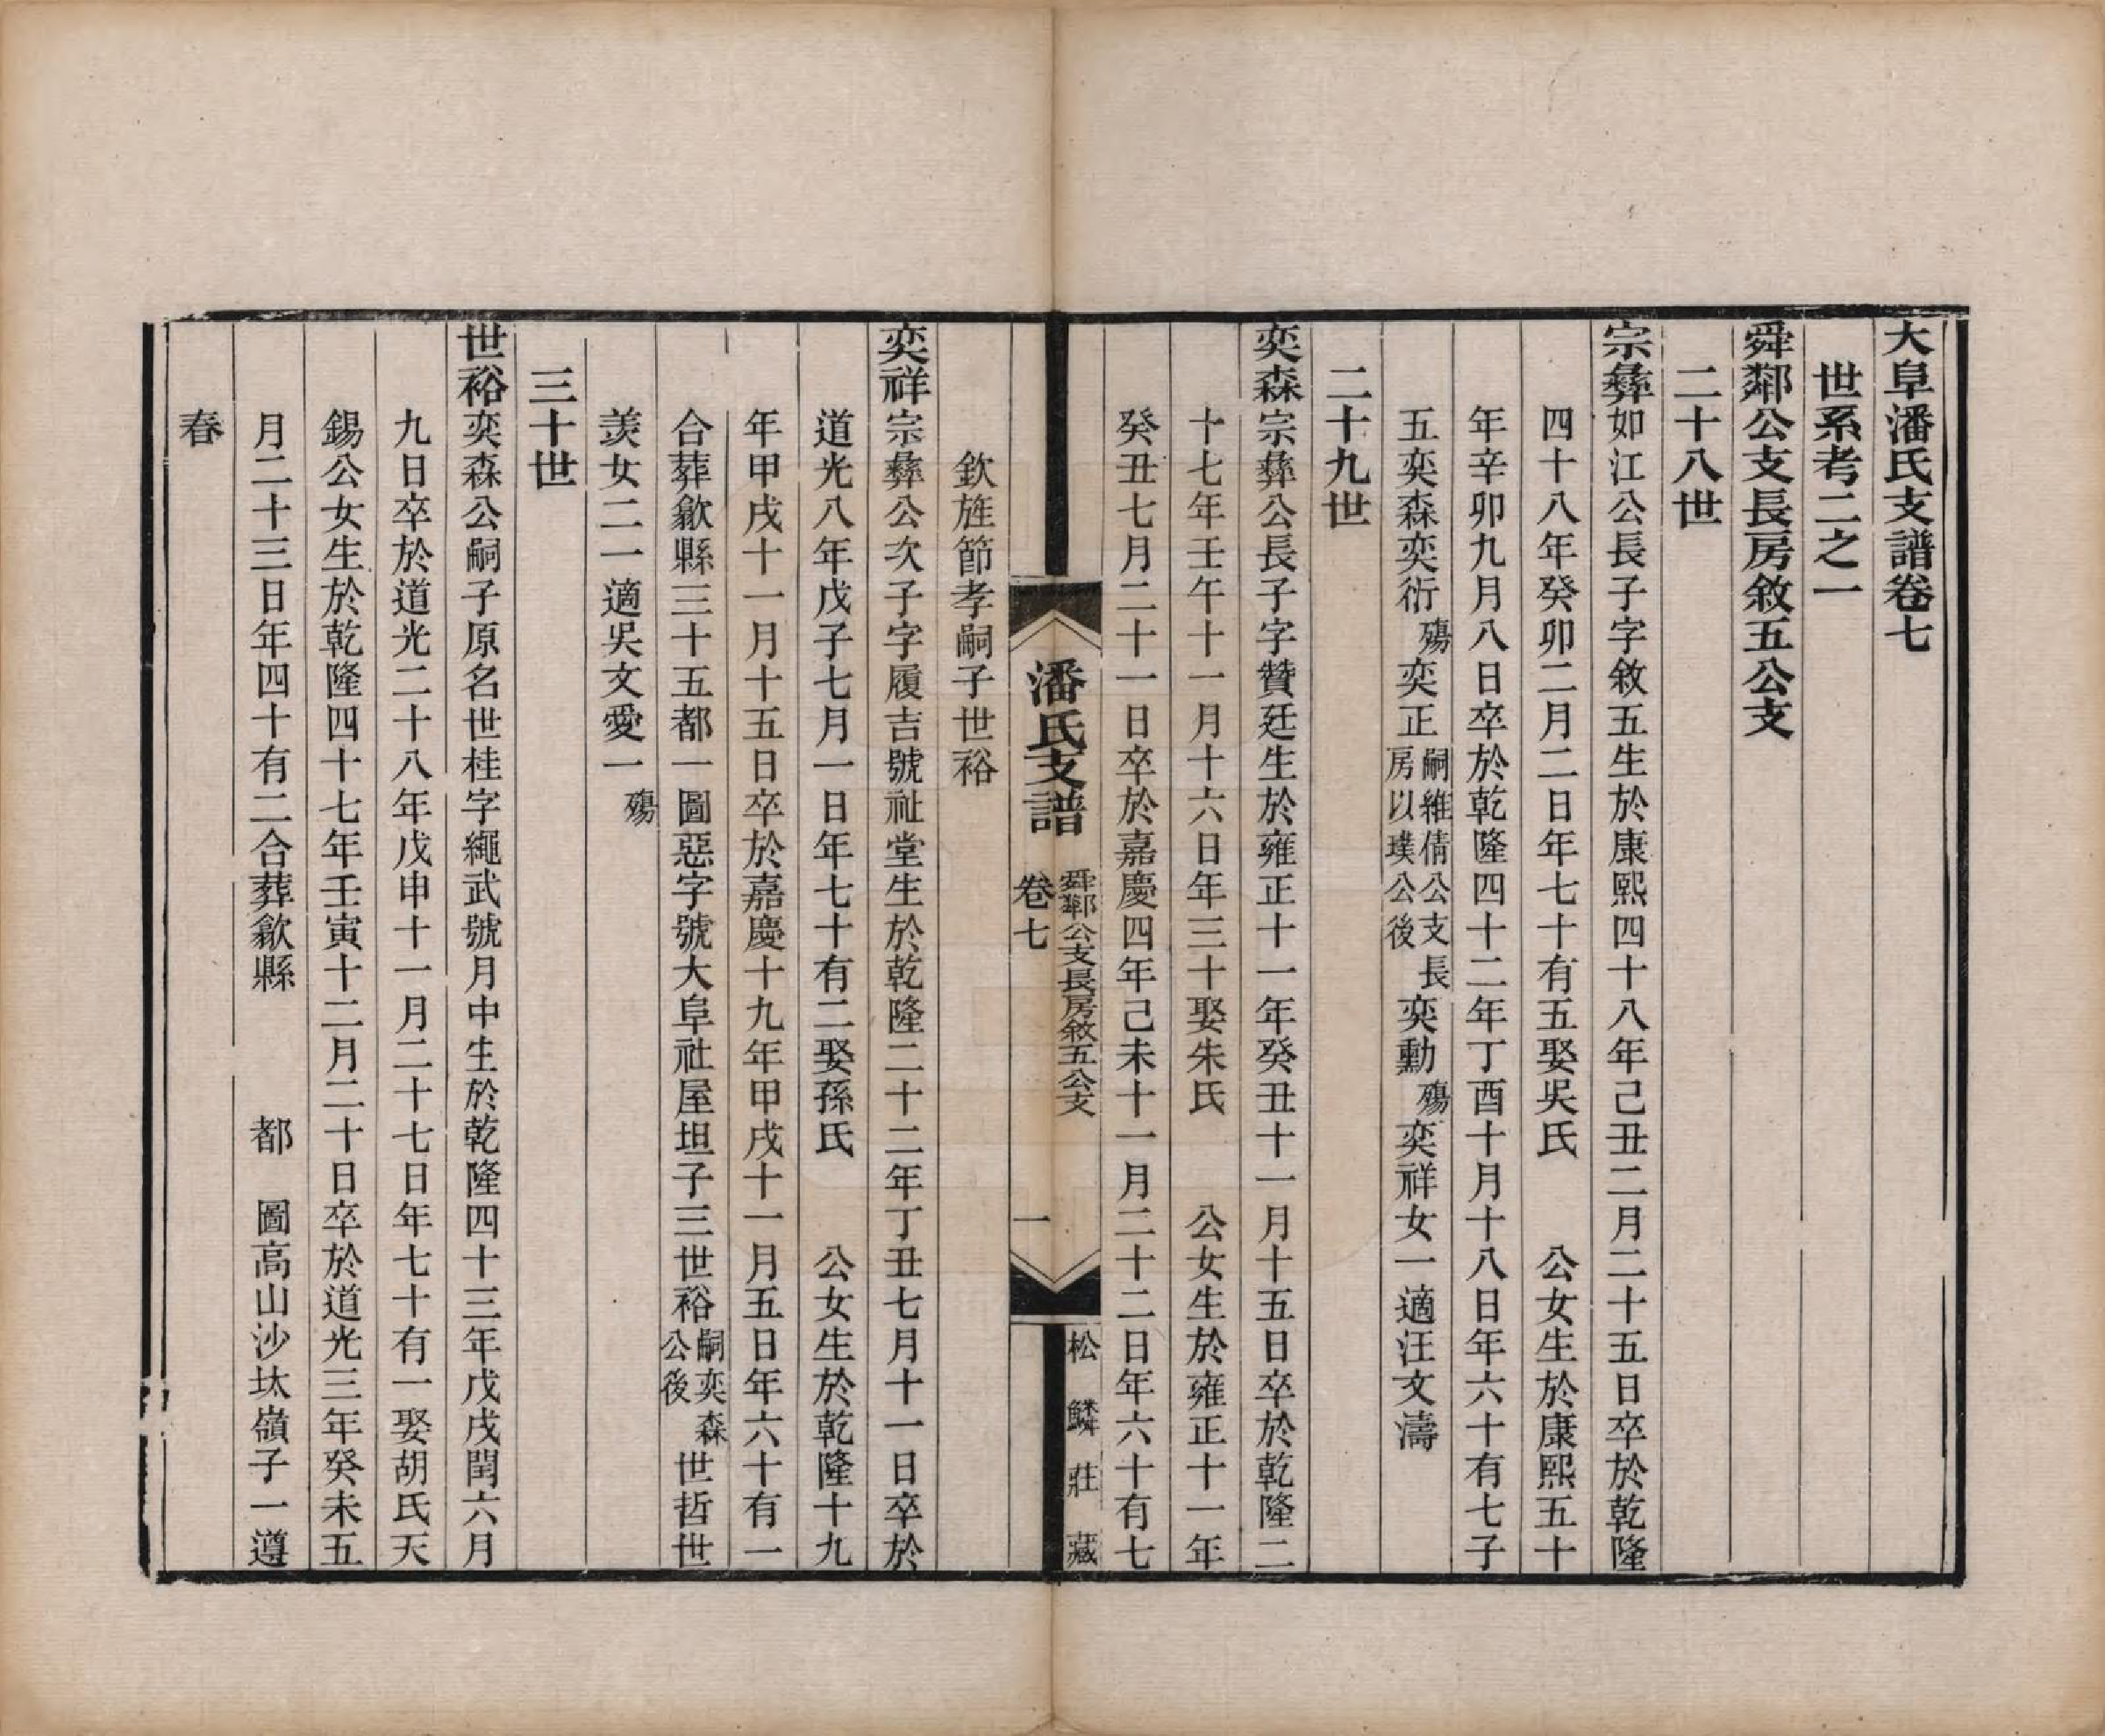 大阜潘氏支譜卷七
世系考二之一
舜鄰公支長房敘五公支
二十八世
宗彝如江公長子字敘五生於康熙四十八年己丑二月二十五日卒於乾隆
四十八年癸卯二月二日年七十有五娶吳氏 公女生於康熙五十
年辛卯九月八日卒於乾隆四十二年丁酉十月十八日年六十有七子
五奕森奕衍殤奕正嗣維倩公支長房以璞公後奕勳殤奕祥女一適汪文濤
二十九世
奕森宗彝公長子字贊廷生於雍正十一年癸丑十一月十五日卒於乾隆二
十七年壬午十一月十六日年三十娶朱氏 公女生於雍正十一年
癸丑七月二十一日卒於嘉慶四年己未十一月二十二日年六十有七
潘氏支譜 卷七 舜鄰公支長房敘五公支 一 松鱗莊藏
欽旌節孝嗣子世裕
奕祥宗彝公次子字履吉號祉堂生於乾隆二十二年丁丑七月十一日卒於
道光八年戊子七月一日年七十有二娶孫氏 公女生於乾隆十九
年甲戌十一月十五日卒於嘉慶十九年甲戌十一月五日年六十有一
合葬歙縣三十五都一圖惡字號大阜社屋坦子三世裕嗣奕森公後世哲世
羨女二一適吳文愛一殤
三十世
世裕奕森公嗣子原名世桂字繩武號月中生於乾隆四十三年戊戌閏六月
九日卒於道光二十八年戊申十一月二十七日年七十有一娶胡氏天
錫公女生於乾隆四十七年壬寅十二月二十日卒於道光三年癸未五
月二十三日年四十有二合葬歙縣 都 圖高山沙垯嶺子一遵
春